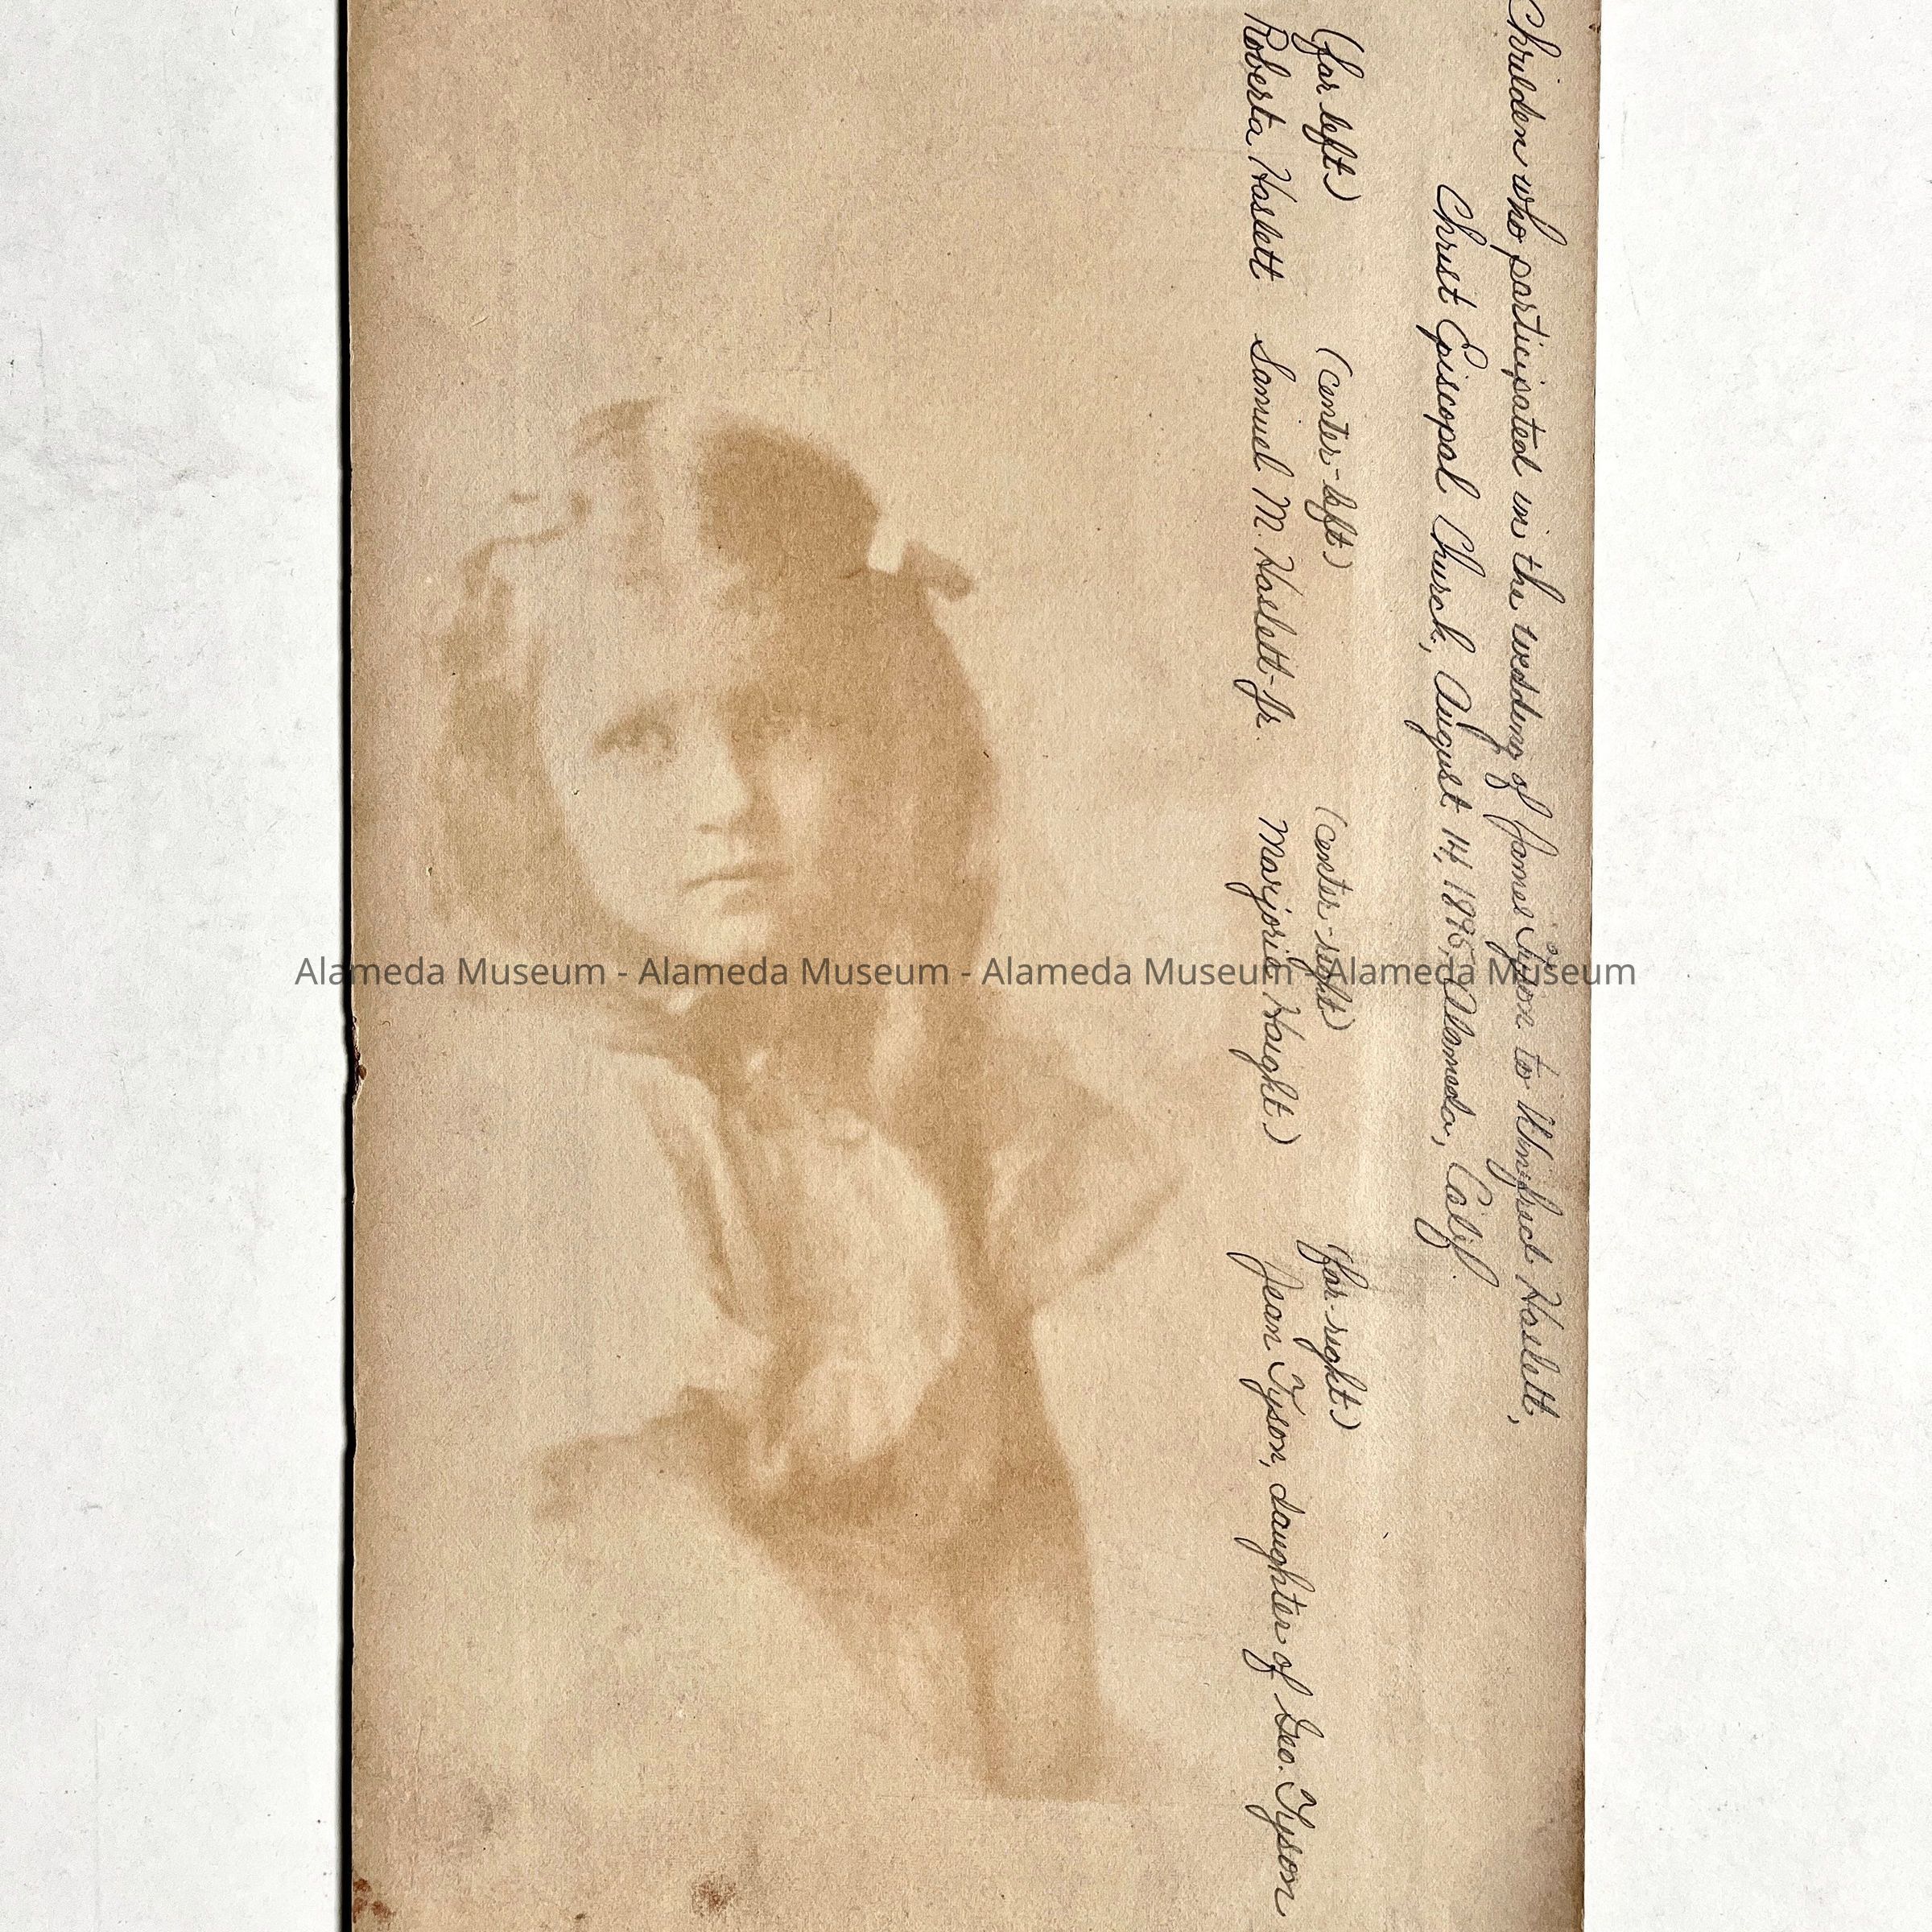 Children who participated in the wedding of James Tyson to Winifred Haslett,
Christ Episcopal Church, August 14, 1895, Alameda, Calif.
(far left) (center-left) (center-right) (far right)
Roberta Haslett Samuel M. Haslett-Jr. Marjorie Haight) Jean Tyson, daughter of Geo. Tyson
Alameda Museum - Alameda Museum - Alameda Museum - Alameda Museum